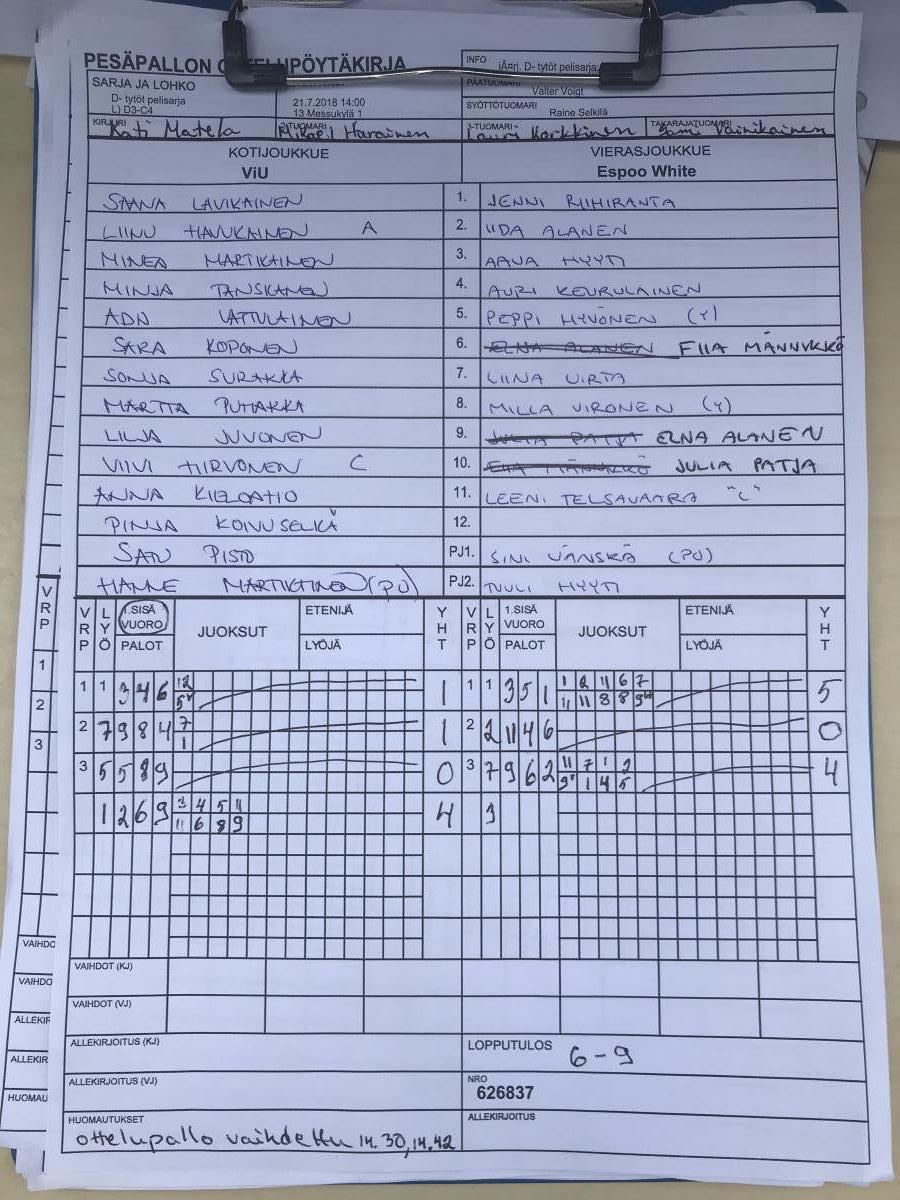 PESÄPALLON OTTELUPÖYTÄKIRJA
INFO
D- tytöt pelisarja
SARJA JA LOHKO
D- tytöt pelisarja
L) D3-C4
21.7.2018 14:00
13 Messukylä 1
PÄÄTUOMARI
Valter Voigt
SYÖTTÖTUOMARI
Raine Selkilä
KIRJURI
Kati Matela
2-TUOMARI
Mikael Harainen
3-TUOMARI
Lauri Karkkinen
TAKARAJATUOMARI
Sami Vainikainen
KOTIJOUKKUE
ViU
VIERASJOUKKUE
Espoo White
SAANA LAVIKAINEN 1. JENNI RIIHIRANTA
LIINU HAVUKAINEN A 2. IIDA ALANEN
MINEA MARTIKAINEN 3. AAVA HYYTI
MINJA TANSKANEN 4. AURI KEURULAINEN
ADA VATTULAINEN 5. PEPPI HYVÖNEN (Y)
SARA KOPONEN 6. ELNA ALANEN FIIA MÄNNYKKÖ
SONJA SURAKKA 7. LIINA VIRTA
MARTTA PUHAKKA 8. MILLA VIRONEN (Y)
LILJA JUVONEN 9. JULIA PATJA ELNA ALANEN
VIIVI HIRVONEN C 10. FIIA MÄNNYKKÖ JULIA PATJA
ANNA 11. LEENI TELSAVAARA "C"
PINJA KOIVUSELKÄ 12.
SATU PISTO PJ1. SINI VÄNSKÄ (PU)
HANNE MARTIKAINEN (PU) PJ2. TUULI HYYTI
VRP LYÖ 1.SISÄ VUORO PALOT JUOKSUT ETENIJÄ LYÖJÄ YHT VRP LYÖ 1.SISÄ VUORO PALOT JUOKSUT ETENIJÄ LYÖJÄ YHT
1 1 3 4 6 12 1 1 1 3 5 1 1 2 11 6 7 5
5" 11 11 8 8 9"
2 7 9 8 4 7 1 2 2 11 4 6 0
1
3 5 5 8 9 0 3 7 9 6 2 11 7 1 2 4
9" 1 4 5
1 2 6 9 3 4 5 11 4 3
11 6 8 9
VAIHDOT (KJ)
VAIHDOT (VJ)
ALLEKIRJOITUS (KJ)
LOPPUTULOS
6-9
ALLEKIRJOITUS (VJ)
NRO
626837
HUOMAUTUKSET
ottelupallo vaihdettu 14.30, 14.42
ALLEKIRJOITUS
VRP
1
2
3
VAIHDO
VAIHDO
ALLEKIR
ALLEKIR
HUOMAU